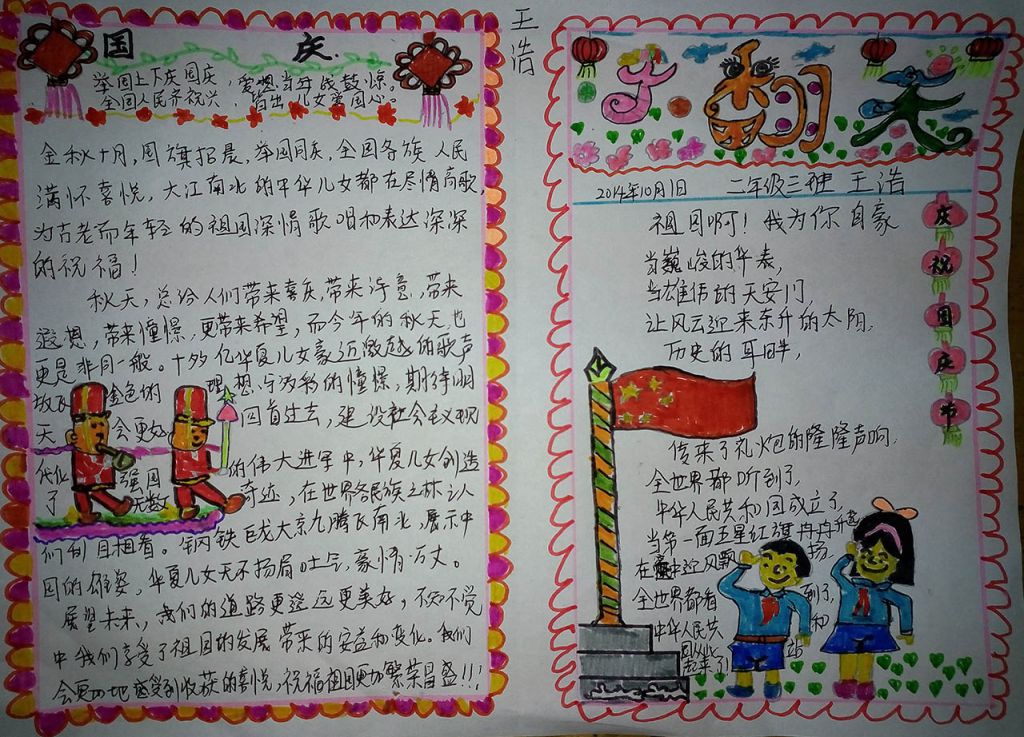 国 庆
举国上下庆国庆，爱想当年战鼓惊。
全国人民齐祝兴，皆出儿女爱国心。
金秋十月，国旗招展，举国同庆，全国各族人民
满怀喜悦，大江南北的中华儿女都在尽情高歌，
为古老而年轻的祖国深情歌唱和表达深深
的祝福！
秋天，总给人们带来喜庆，带来诗意，带来
遐想，带来憧憬，更带来希望，而今年的秋天也
更是非同一般。十多亿华夏儿女豪迈激越的歌声
放飞金色的理想与为彩的憧憬，期待明
天会更好 回首过去，建设社会主义现
代化强国的伟大进军中，华夏儿女创造
了无数奇迹，在世界各民族之林让人
们刮目相看。钢铁巨龙大京九腾飞南北，展示中
国的雄姿，华夏儿女无不扬眉吐气，豪情万丈。
展望未来，我们的道路更遥远更美好，不知不觉
中我们享受了祖国的发展带来的安益和变化。我们
会更加地感受到收获的喜悦，祝福祖国更加繁荣昌盛！！！
王浩
2014年10月1日 二年级三班 王浩
祖国啊！我为你自豪
当巍峻的华表，
当雄伟的天安门，
让风云迎来东升的太阳，
历史的耳畔，
传来了礼炮的隆隆声响，
全世界都听到了，
中华人民共和国成立了，
当第一面五星红旗冉冉升起
在 中迎风飘扬，
全世界都看到了，
中华人民共和
国从此站
起来了！
庆祝国庆节